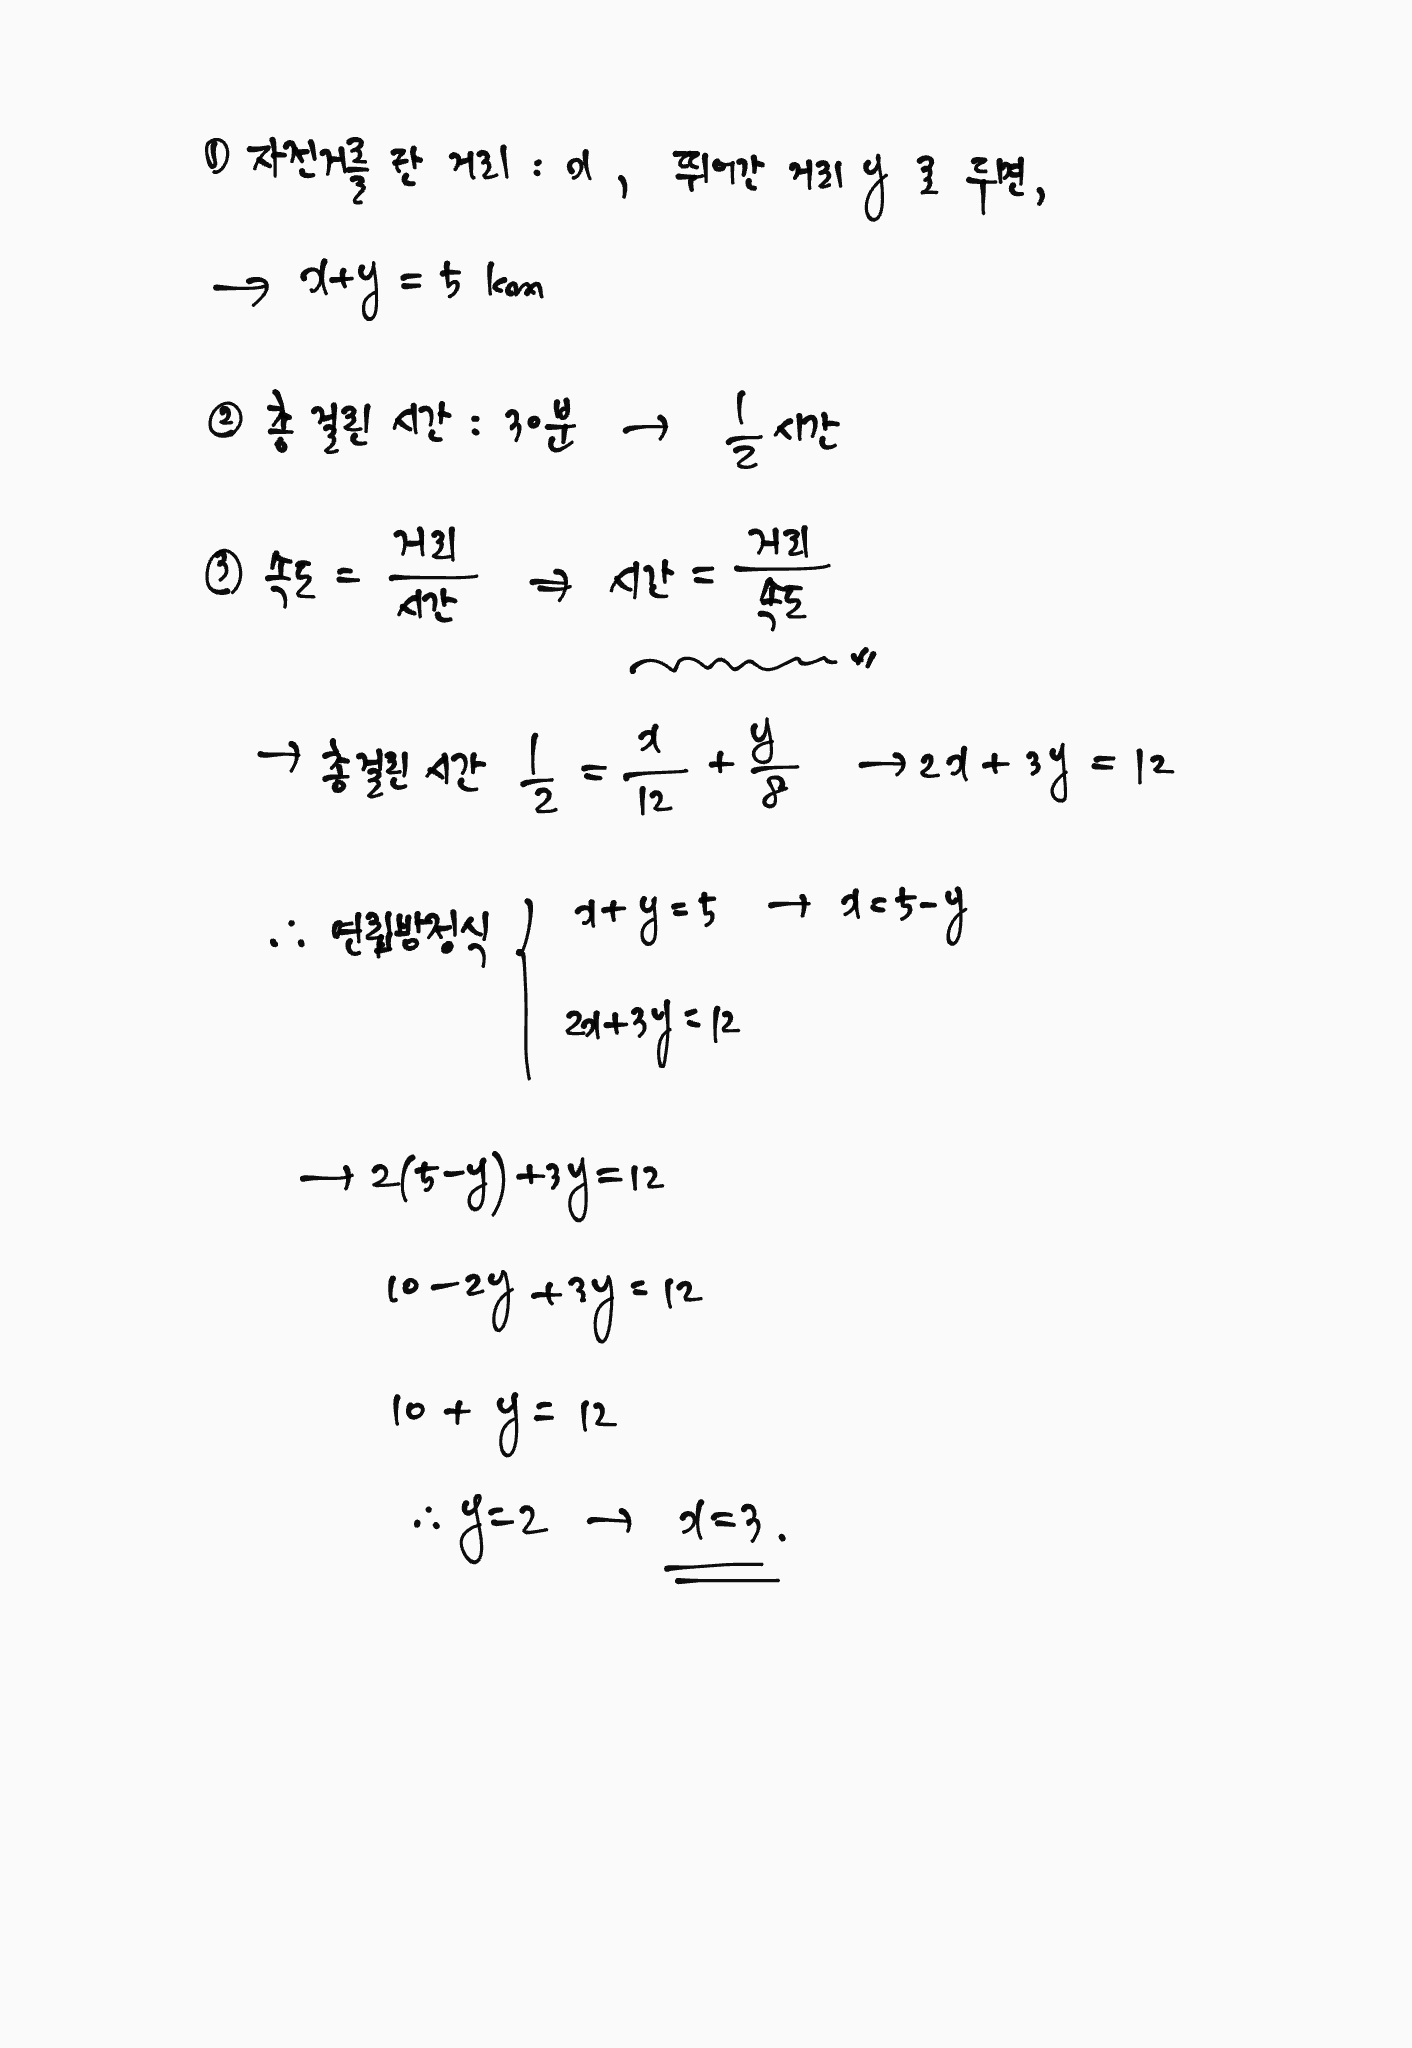 ① 자전거를 탄 거리 : x , 뛰어간 거리 y 로 두면,
→ x+y = 5 km
② 총 걸린 시간 : 30분 → 1/2 시간
③ 속도 = 거리/시간 ⇒ 시간 = 거리/속도 〃
→ 총 걸린 시간 1/2 = x/12 + y/8 → 2x + 3y = 12
∴ 연립방정식 { x+y=5 → x=5-y
2x+3y=12
→ 2(5-y)+3y=12
10-2y+3y=12
10 + y = 12
∴ y=2 → x=3.